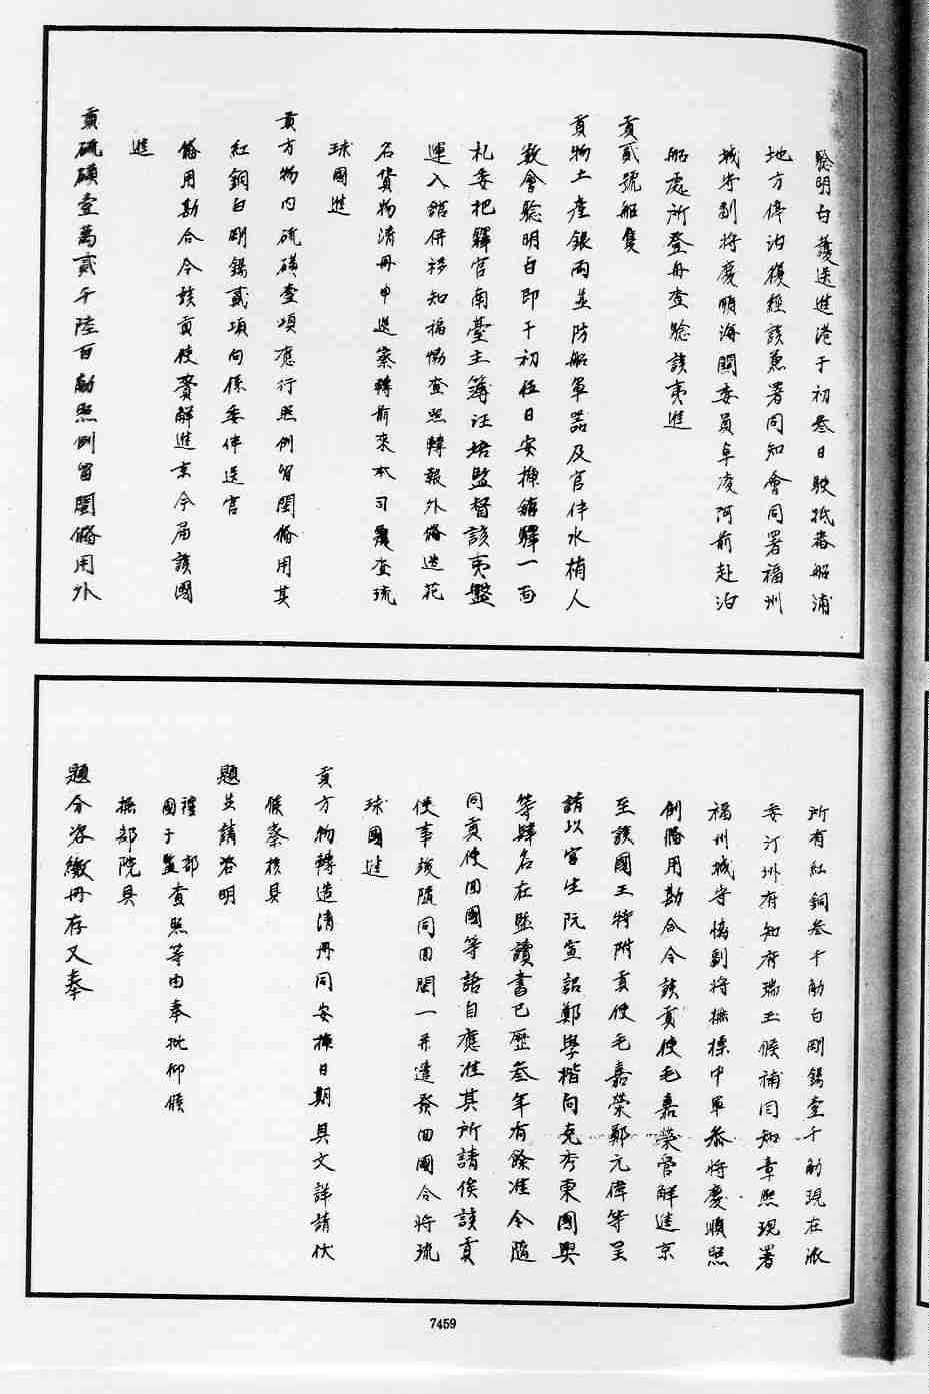 驗明白護送進港于初叁日駛抵番船浦
地方停泊復經該兼署同知會同署福州
城守副將慶順海關委員阜凌阿前赴泊
船處所登舟查驗該夷進
貢貳號船隻
貢物土產銀兩並防船軍器及官伴水梢人
數會驗明白即于初伍日安揷舘驛一面
札委把驛官南臺主簿汪培監督該夷盤
運入舘併移知福協查照轉報外備造花
名貨物清冊申送察轉前來本司覆查琉
球國進
貢方物內硫磺壹項應行照例留閩備用其
紅銅白剛錫貳項向係委伴送官
備用勘合令該貢使賫解進京今屆該國
進
貢硫磺壹萬貳千陸百觔照例留閩備用外
所有紅銅叁千觔白剛錫壹千觔現在派
委汀州府知府瑞玉候補同知章熙現署
福州城守協副將撫標中軍叅將慶順照
例備用勘合令該貢使毛嘉榮管解進京
至該國王特附貢使毛嘉榮鄭元偉等呈
請以官生阮宣詔鄭學楷向克秀東國興
等肆名在監讀書已歷叁年有餘准令隨
同貢使回國等語自應准其所請俟該貢
使事竣隨同回閩一并遣發回國今將琉
球國進
貢方物轉造清冊同安揷日期具文詳請伏
候察核具
題並請咨明
禮部
國子監查照等由奉批仰候
撫部院具
題分咨繳冊存又奉
7459